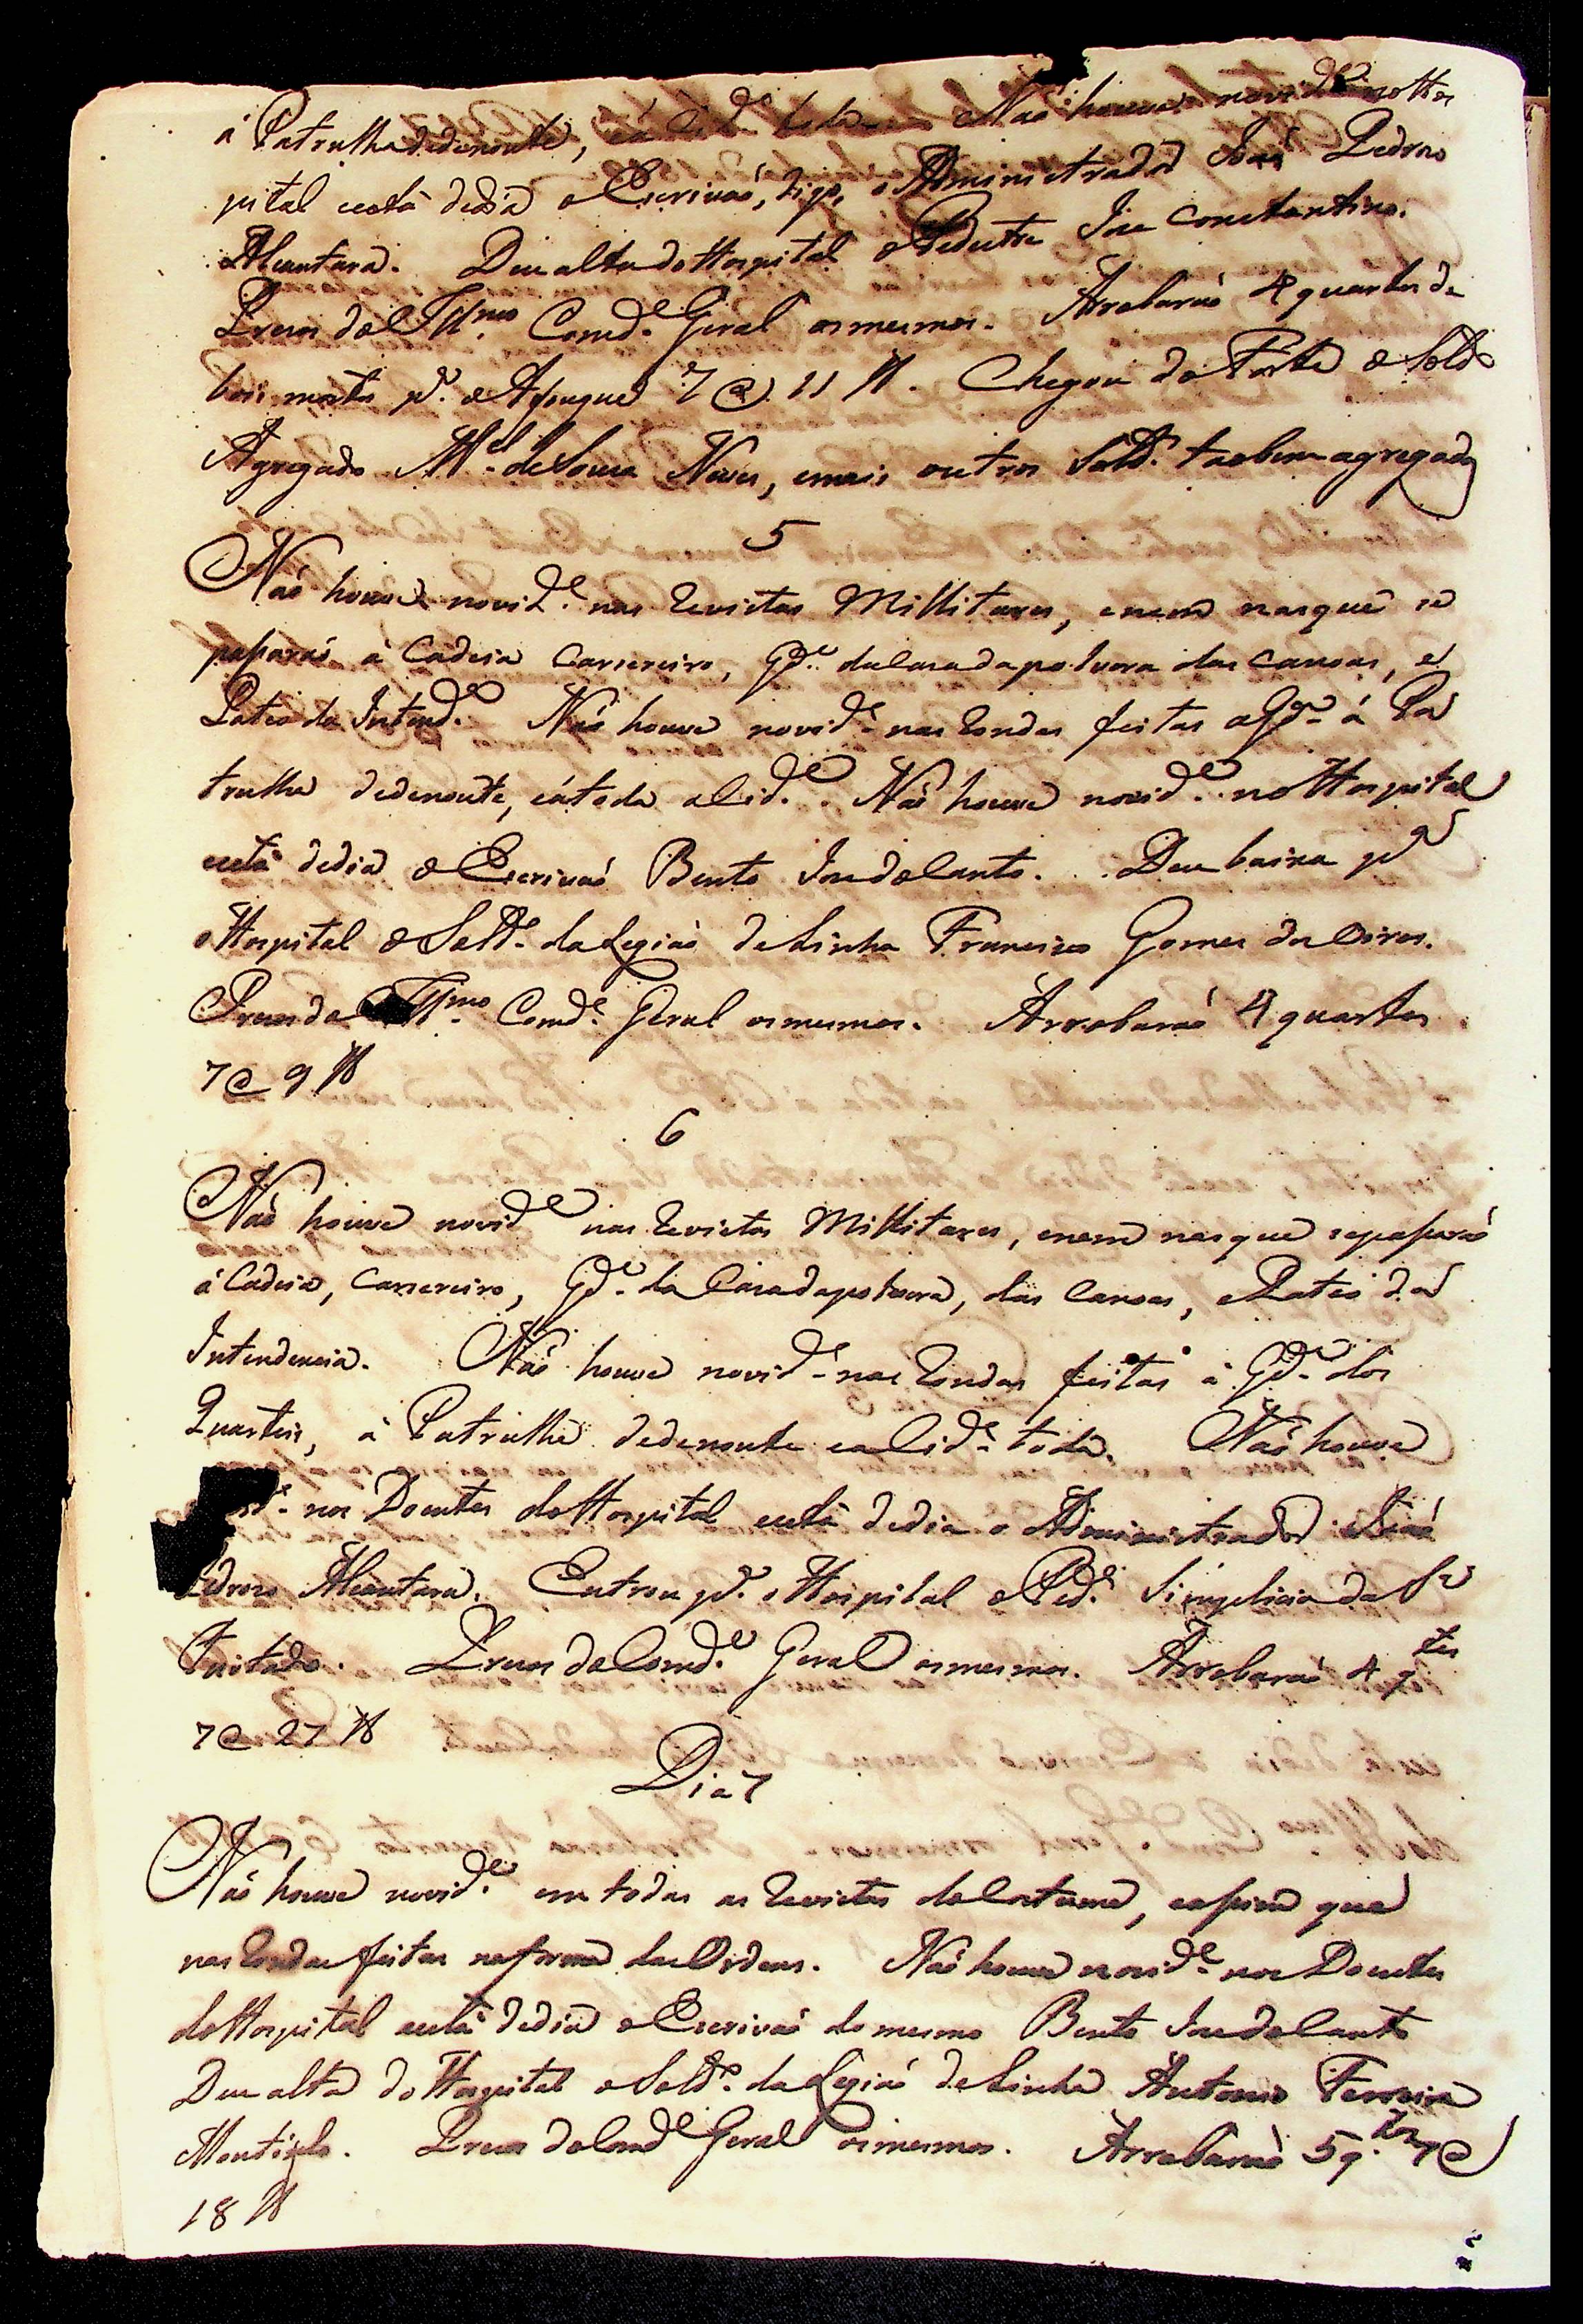 á Patrulha dedenoute, eá Cid.e toda. Naó houve novid.e noHos
pital está dedia oEscrivaó, digo, oAdministrador Joaó Pedrozo
Alcantara. Deu alta doHospital oPedestre Joze Constantino.
Prezos do Ill.mo Comd.e Geral osmesmos. Arrobaraó 4 quartos de
boi mortos p.a oAsougue 7 @ 11 lb. Chegou do Forte oSold.o
Agregado M.el deSouza Neves, emais outros Sold.os taobem agregados
5
Naó houve novid.e nas Revistas Millitares, enem nasque se
passaraó á Cadeia Carsereiro, Gd.as daCasadapolvora das Canoas, e
Pateo da Intend.a Naó houve novid.e nas Rondas feitas aGd.a á Pa
trulha dedenoute, eátoda aCid.e. Naó houve novid.e noHospital
está dedia oEscrivaó Bento Joze dosSantos. Deu baixa p.a
oHospital oSold.o daLegiaó deLinha Francisco Gomes
Prezos do Ill.mo Comd.e Geral osmesmos. Arrobaraó 4 quartos
7 @ 9 lb
6
Naó houve novid.e nas Revistas Millitares, enem nasque sepassaraó
á Cadeia, Carsereiro, Gd.as da Casadapolvora, das Canoas, ePateo da
Intendencia. Naó houve novid.e nas Rondas feitas á Gd.a dos
Quarteis, á Patrulha dedenoute eaCid.e toda. Naó houve
vid.e nos Doentes doHospital está dedia o Administrador Joaó
edrozo Alcantara. Entrou p.a oHospital oPed.e Simplicio da S.a
Prezos doComd.e Geral osmesmos. Arrobaraó 4 q.tos
7 @ 27 lb
Dia 7
Naó houve novid.e em todas as Revistas doCostume, eassim que
nas Rondas feitas naforma dasOrdens. Naó houve novid.e nos Doentes
doHospital está dedia oEscrivaó domesmo Bento Joze dosSantos
Deu alta doHospital oSold.o daLegiaó deLinha Antonio Ferreira
Prezos doComd.e Geral osmesmos. Arrobaraó 5 q.tos 7 @
18 lb